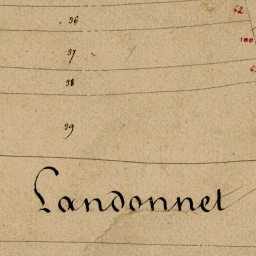 96
62
100
97
98
99
Landonnet